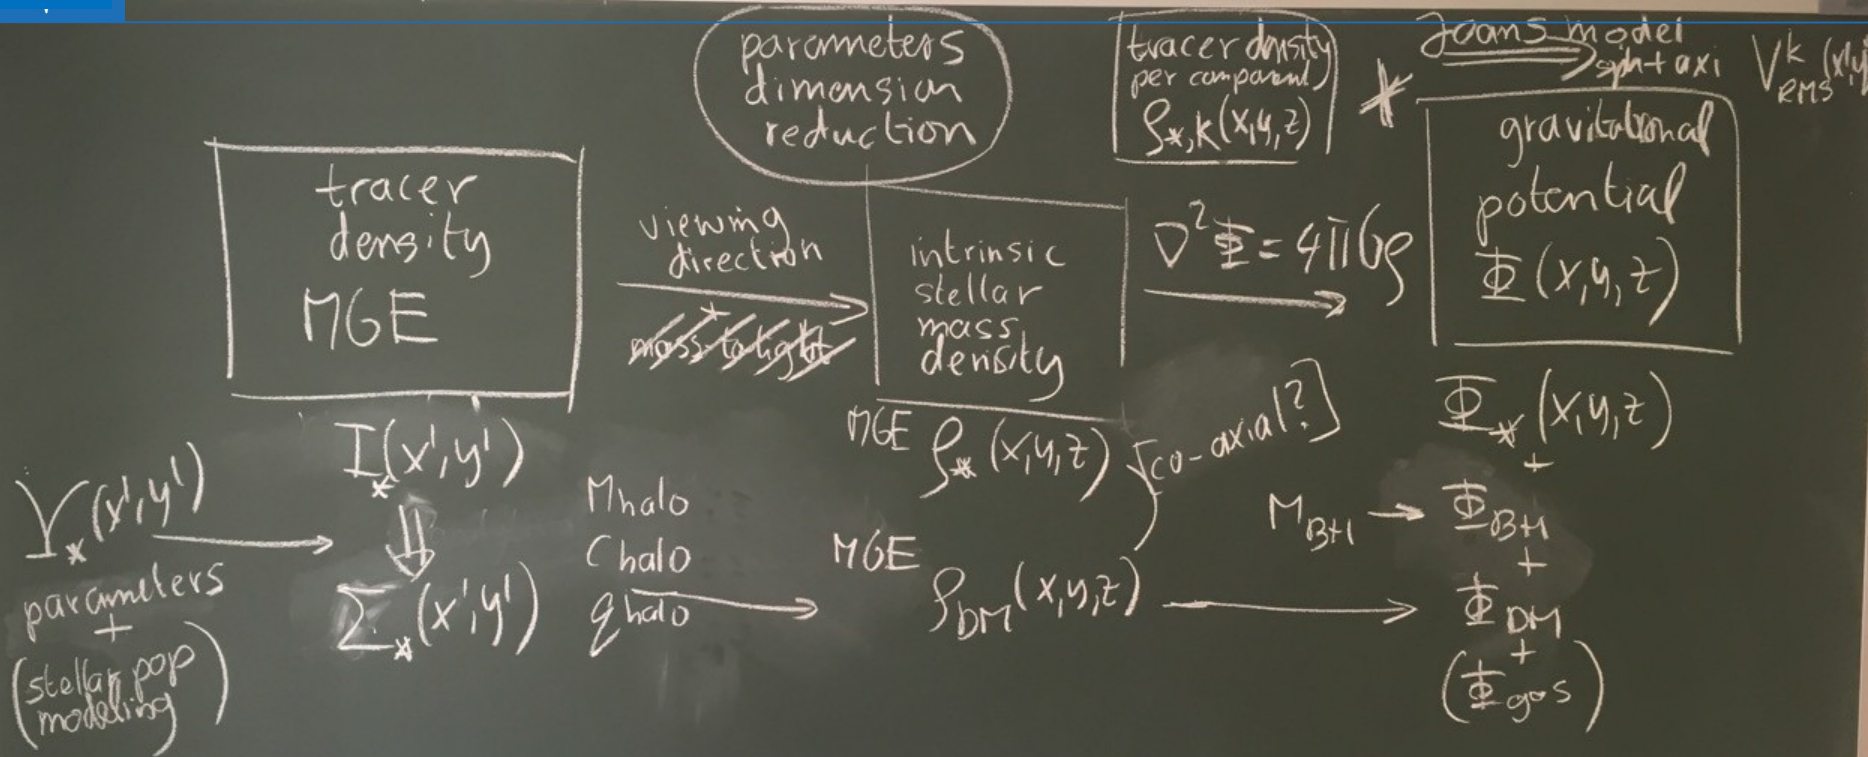 parameters
dimension
reduction
tracer density
per component
ρ*,k(x,y,z)
*
Jeans model
sph + axi
V^k_RMS(x',y
tracer
density
MGE
viewing
direction
*
mass-to-light
intrinsic
stellar
mass
density
∇²Φ = 4πGρ
gravitational
potential
Φ(x,y,z)
I*(x',y')
MGE ρ*(x,y,z)
[co-axial?]
Φ*(x,y,z)
+
Υ*(x',y')
parameters
+
(stellar pop
modeling)
Σ*(x',y')
Mhalo
Chalo
qhalo
MGE
ρDM(x,y,z)
M_BH → Φ_BH
+
Φ_DM
+
(Φgas)